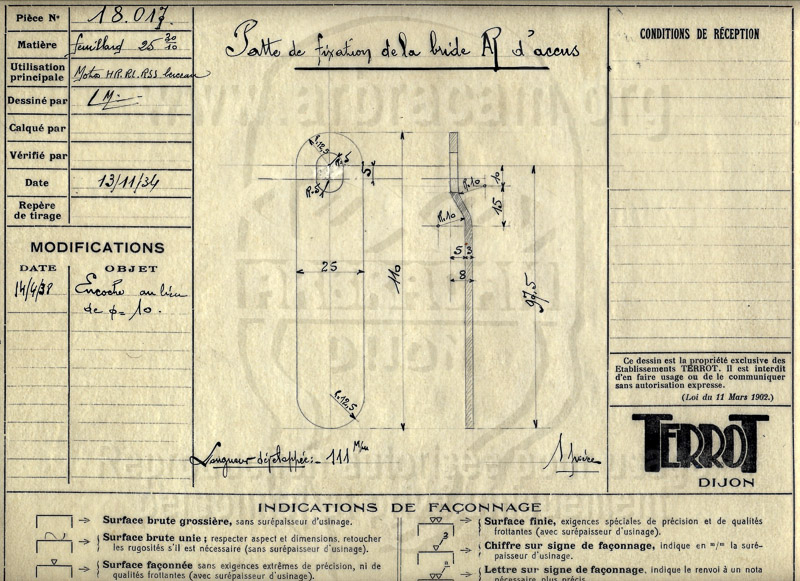 Pièce N° 18.017
Matière feuillard 25 30/10
Utilisation principale Motos HR.RL.RSS berceau
Dessiné par
Calqué par
Vérifié par
Date 13/11/34
Repère de tirage
MODIFICATIONS
DATE OBJET
14/4/38 Encoche au lieu
de φ= 10.
Patte de fixation de la bride AR d'accus
R.12,5
R.5
R.5
5
25
110
R.12,5
R.10
R.10
10
15
5 3
8
97,5
Longueur développée:- 111 m/m
1 pièce
CONDITIONS DE RÉCEPTION
Ce dessin est la propriété exclusive des
Etablissements TERROT. Il est interdit
d'en faire usage ou de le communiquer
sans autorisation expresse.
(Loi du 11 Mars 1902.)
TERROT
DIJON
INDICATIONS DE FAÇONNAGE
Surface brute grossière, sans surépaisseur d'usinage.
Surface brute unie; respecter aspect et dimensions, retoucher
les rugosités s'il est nécessaire (sans surépaisseur d'usinage).
Surface façonnée sans exigences extrêmes de précision, ni de
qualités frottantes (avec surépaisseur d'usinage).
Surface finie, exigences spéciales de précision et de qualités
frottantes (avec surépaisseur d'usinage).
3
Chiffre sur signe de façonnage, indique en m/m la suré-
paisseur d'usinage.
Lettre sur signe de façonnage, indique le renvoi à un nota
nécessaire plus précis.